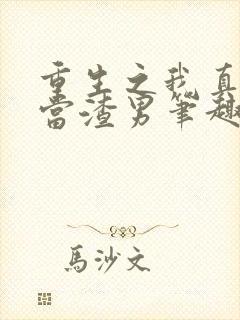 重生之我真
当渣男笔趣
馬沙文